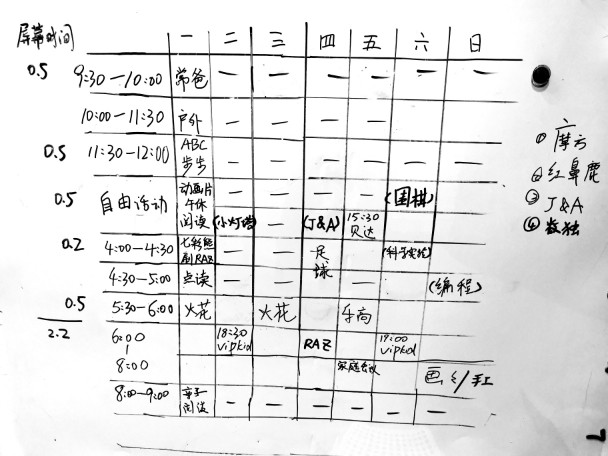 屏幕时间 一 二 三 四 五 六 日
0.5 9:30—10:00 常爸 — — — — — —
10:00—11:30 户外 — — — —
0.5 11:30—12:00 ABC 步步 — — — — — —
0.5 自由活动 动画片 午休 阅读 — — — — (围棋)
(小灯塔) — (J&A) 15:30 贝达
0.2 4:00—4:30 七彩熊 剧RAZ — — 足球 (科学实验)
4:30—5:00 点读 — — (编程)
0.5 5:30—6:00 火花 火花 乐高
2.2 6:00 | 8:00 18:30 vipkid RAZ 19:00 vipkid
家庭会议 画纟/手工
8:00—9:00 亲子阅读 — — — — — —
① 摩方
② 红鼻鹿
③ J&A
④ 数独